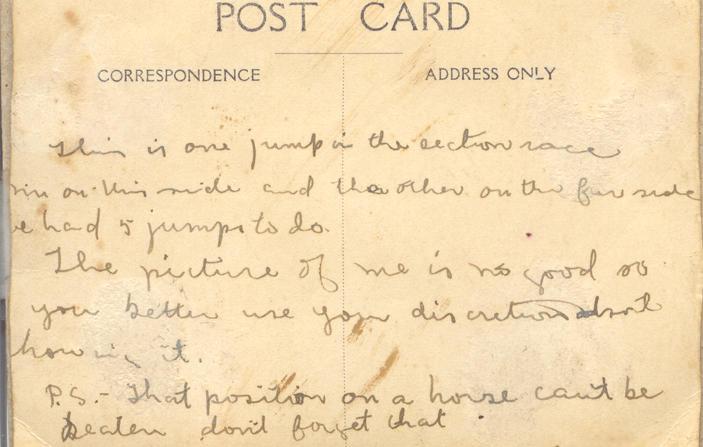 POST CARD
CORRESPONDENCE ADDRESS ONLY
This is one jump in the section race
on this side and the other on the far side
had 5 jumps to do.
The picture of me is no good so
you better use your discretion about
it.
P.S.- That position on a horse can't be
beaten don't forget that